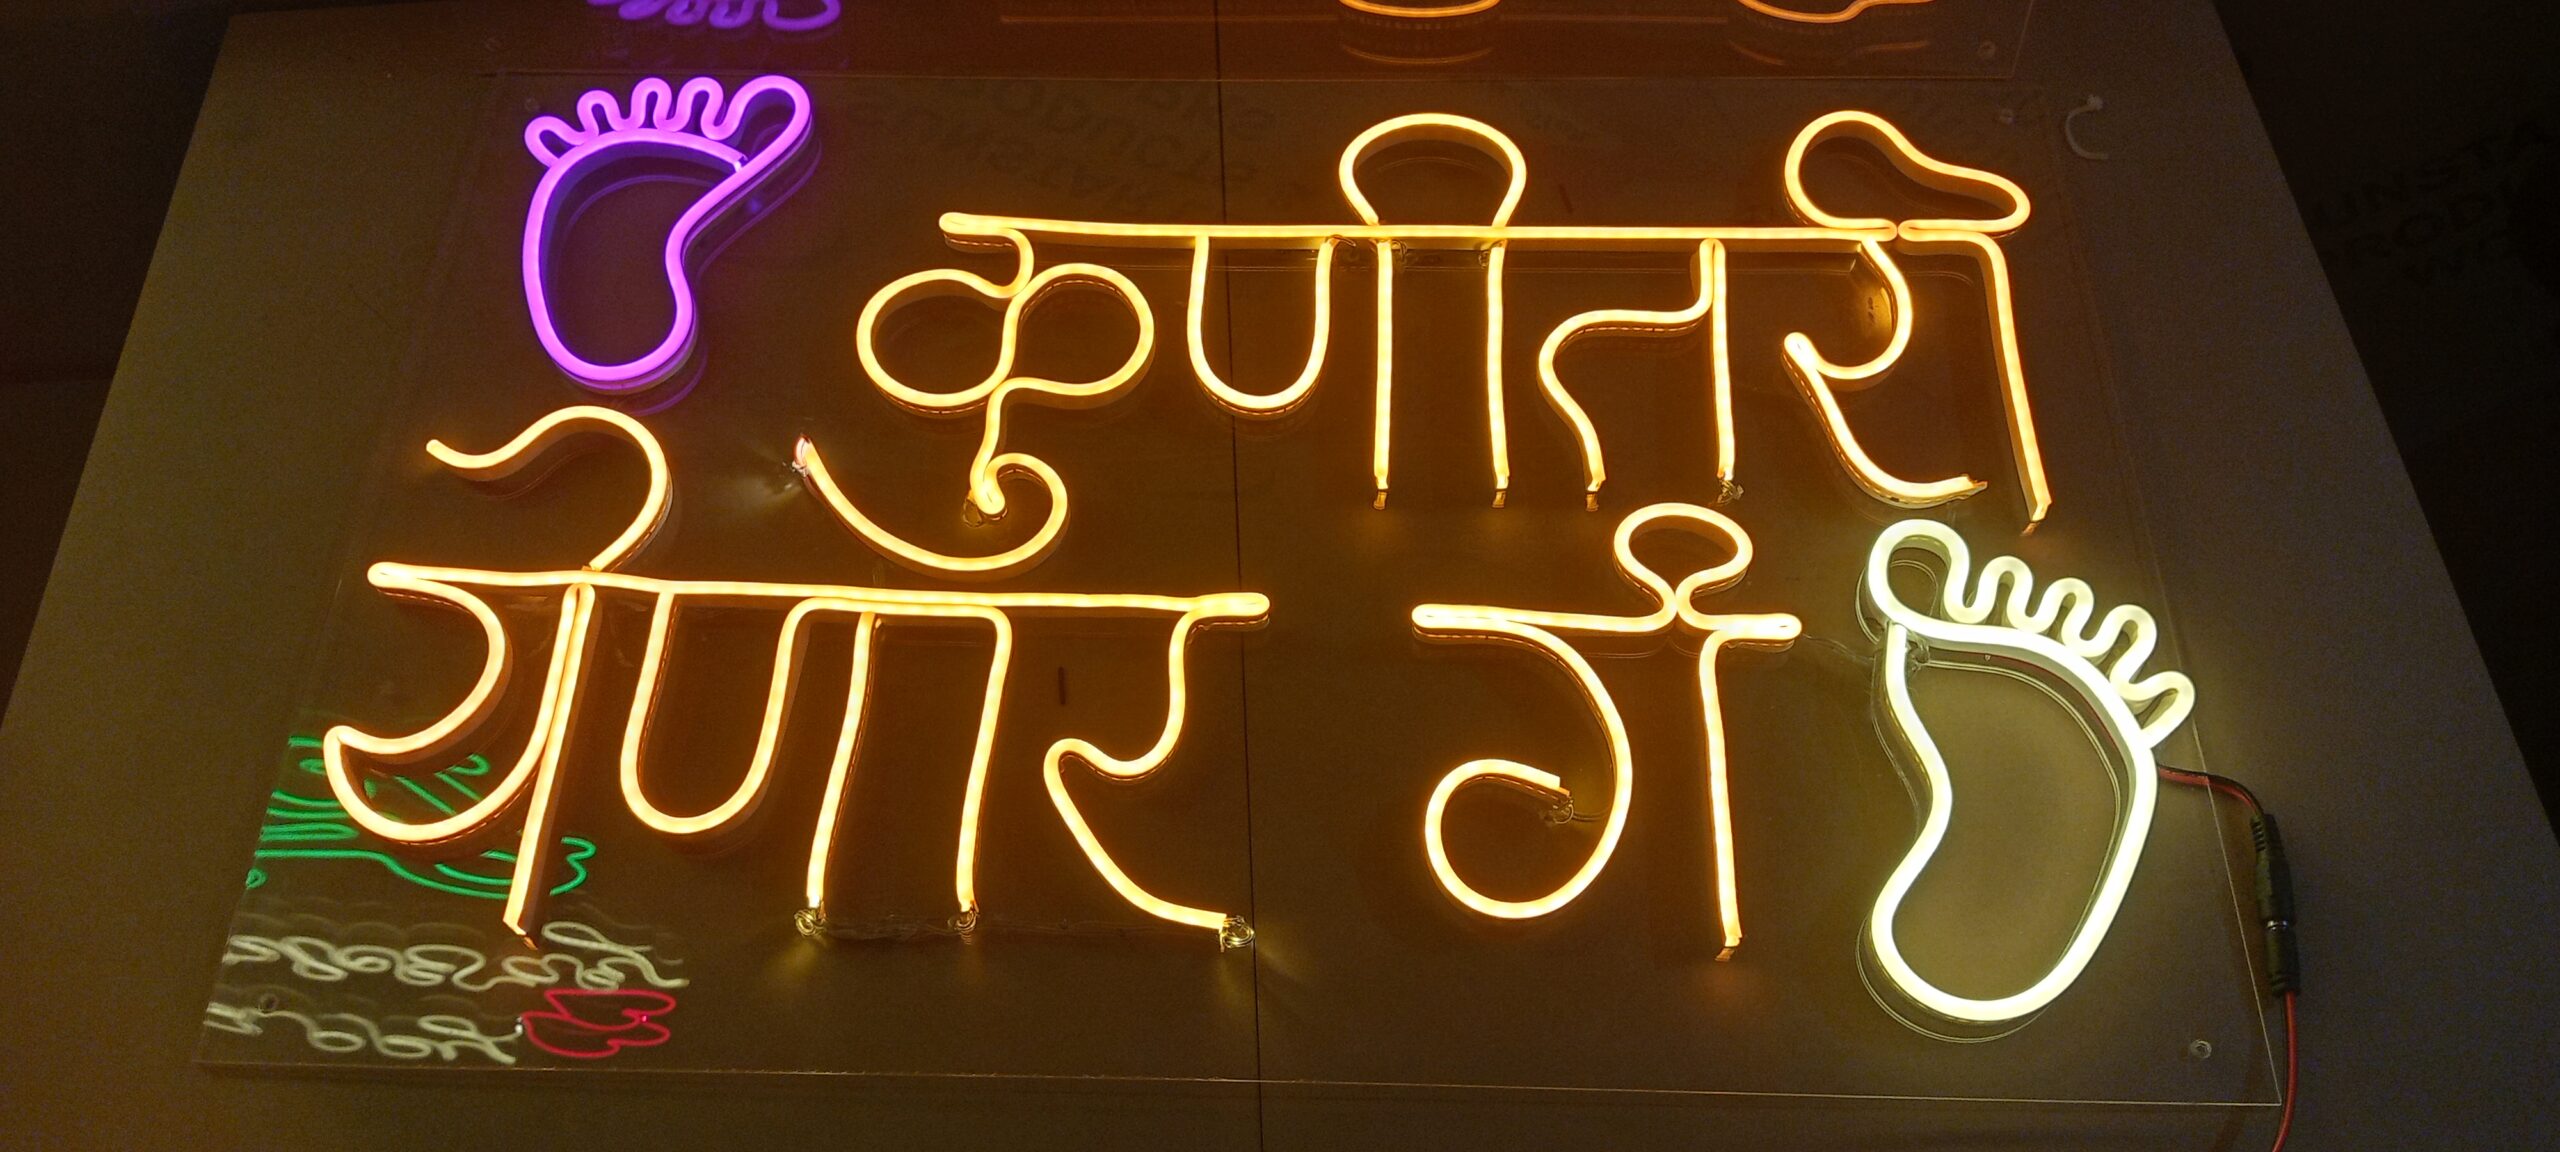 कुणीतरी
येणार गं